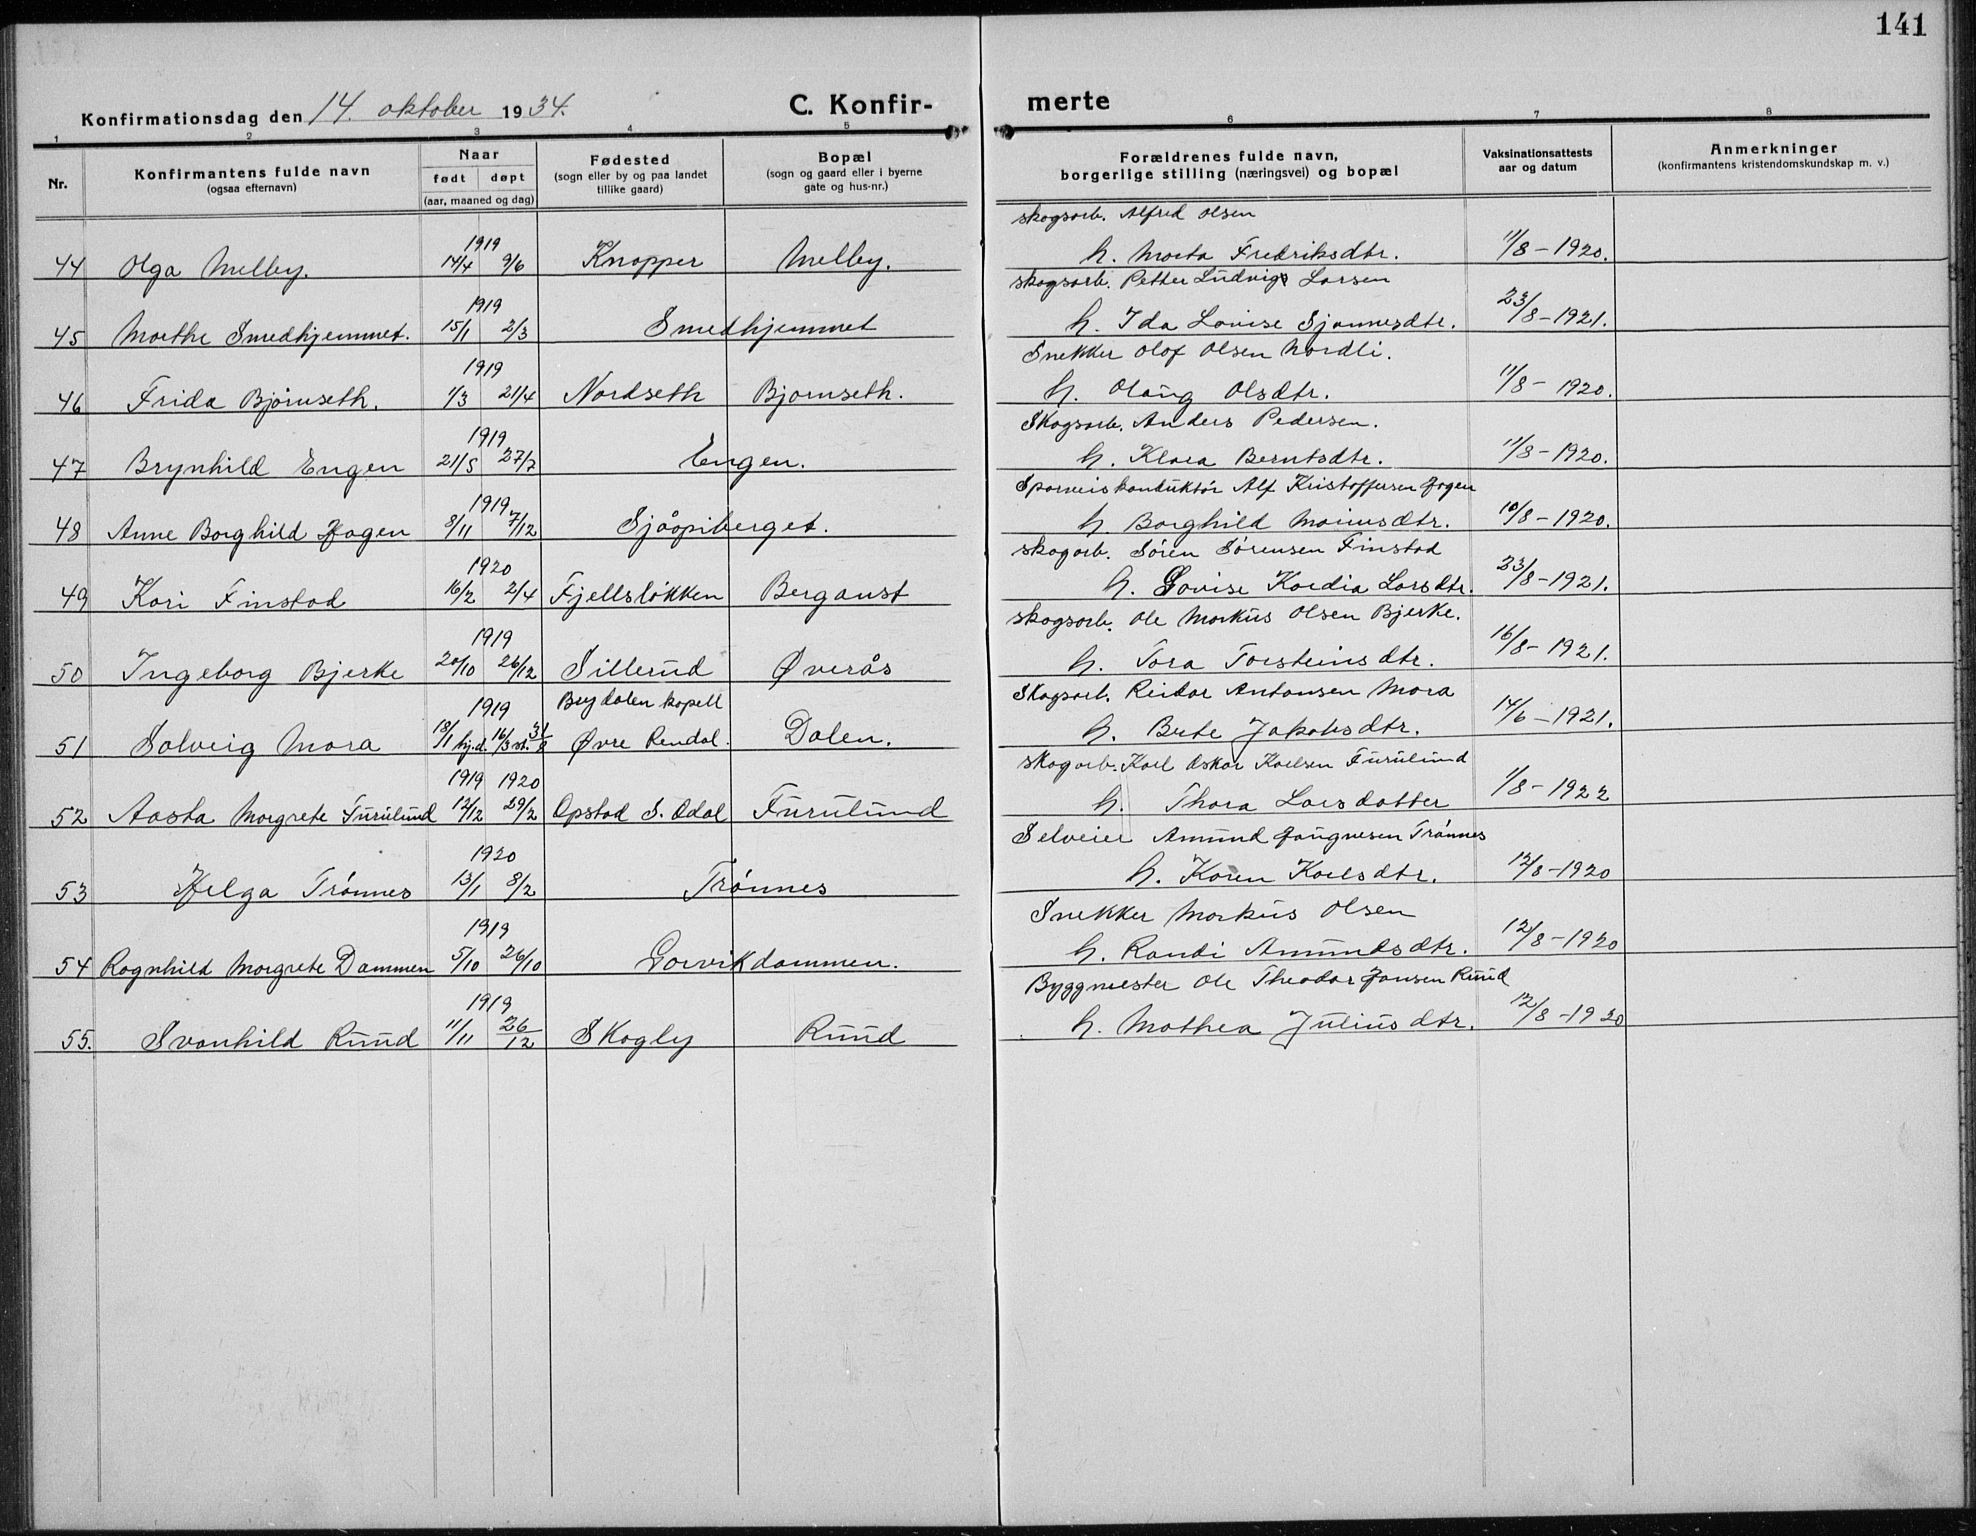 141
Konfirmationsdag den 14. oktober 1934. C. Konfir- merte
1 2 3 4 5 6 7 8
Nr. Konfirmantens fulde navn (ogsaa efternavn) Naar født døpt (aar, maaned og dag) Fødested (sogn eller by og paa landet tillike gaard) Bopæl (sogn og gaard eller i byerne gate og hus-nr.) Forældrenes fulde navn, borgerlige stilling (næringsvei) og bopæl Vaksinationsattests aar og datum Anmerkninger (konfirmantens kristendomskundskap m. v.)
1919 skogsarb. Alfred Olsen
44 Olga Melby. 14/4 9/6 Knapper Melby. h. Marta Fredriksdtr. 11/8-1920.
1919 skogsarb. Petter Ludvig Larsen
45 Marthe Smedhjemmet. 15/1 2/3 Smedhjemmet h. Ida Lovise Sjannesdtr. 23/8-1921.
1919 Snekker Olaf Olsen Nordli.
46 Frida Bjørnseth. 1/3 21/4 Nordseth Bjørnseth. h. Olaug Olsdtr. 11/8-1920.
1919 Skogsarb. Anders Pedersen.
47 Brynhild Engen 21/5 27/7 Engen. h. Klara Berntsdtr. 11/8-1920.
1919 Sporveiskonduktør Alf Kristoffersen Hagen
48 Anne Borghild Hagen 8/11 7/12 Sjåpiberget. h. Borghild Mariusdtr. 10/8-1920.
1920 skogarb. Søren Sørensen Finstad
49 Kari Finstad 16/2 2/4 Fjellsløkken Bergaust h. Lovise Kardia Larsdtr. 23/8-1921.
1919 skogsarb. Ole Markus Olsen Bjerke.
50 Ingeborg Bjerke 20/10 26/12 Sillerud Øverås h. Tora Torsteinsdtr. 16/8-1921.
1919 Brydalen kapell Skogsarb. Reidar Antonsen Mora
51 Solveig Mora 18/1 hj.d. 16/3 st. 31/8 Øvre Rendal. Dalen. h. Berte Jakobsdtr. 14/6-1921.
1919 1920 skogarb. Karl Oskar Karlsen Furulund
52 Aasta Margrete Furulund 12/12 29/2 Opstad S. Odal Furulund h. Thora Larsdatter 1/8-1922
1920 Selveier Amund Haugnesen Trønnes
53 Helga Trønnes 13/1 8/2 Trønnes h. Karen Karlsdtr. 12/8-1920
1919 Snekker Markus Olsen
54 Ragnhild Margrete Dammen 5/10 26/10 Gorvikdammen. h. Randi Amundsdtr. 12/8-1920
1919 Byggmester Ole Theodor Hansen Ruud
55. Svanhild Ruud 11/11 26/12 Skogly Ruud h. Mathea Juliusdtr. 12/8-1920